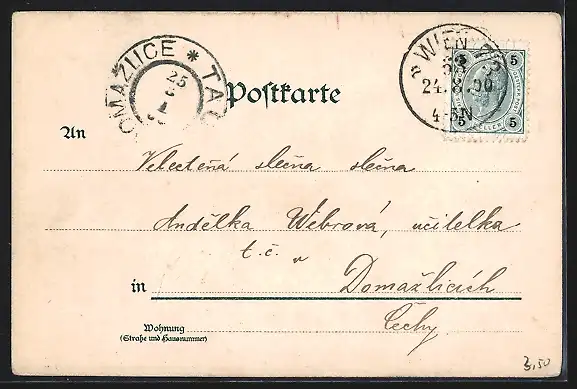 WIEN
5 5
24.8.00
4-5N
5 5
HELLER
DOMAŽLICE * TAUS
25
8
Postkarte
An
Velectěná slečna slečna
Andělka Webrová, učitelka
t. č. v
in Domažlicích
Wohnung Čechy
(Straße und Hausnummer)
3,50